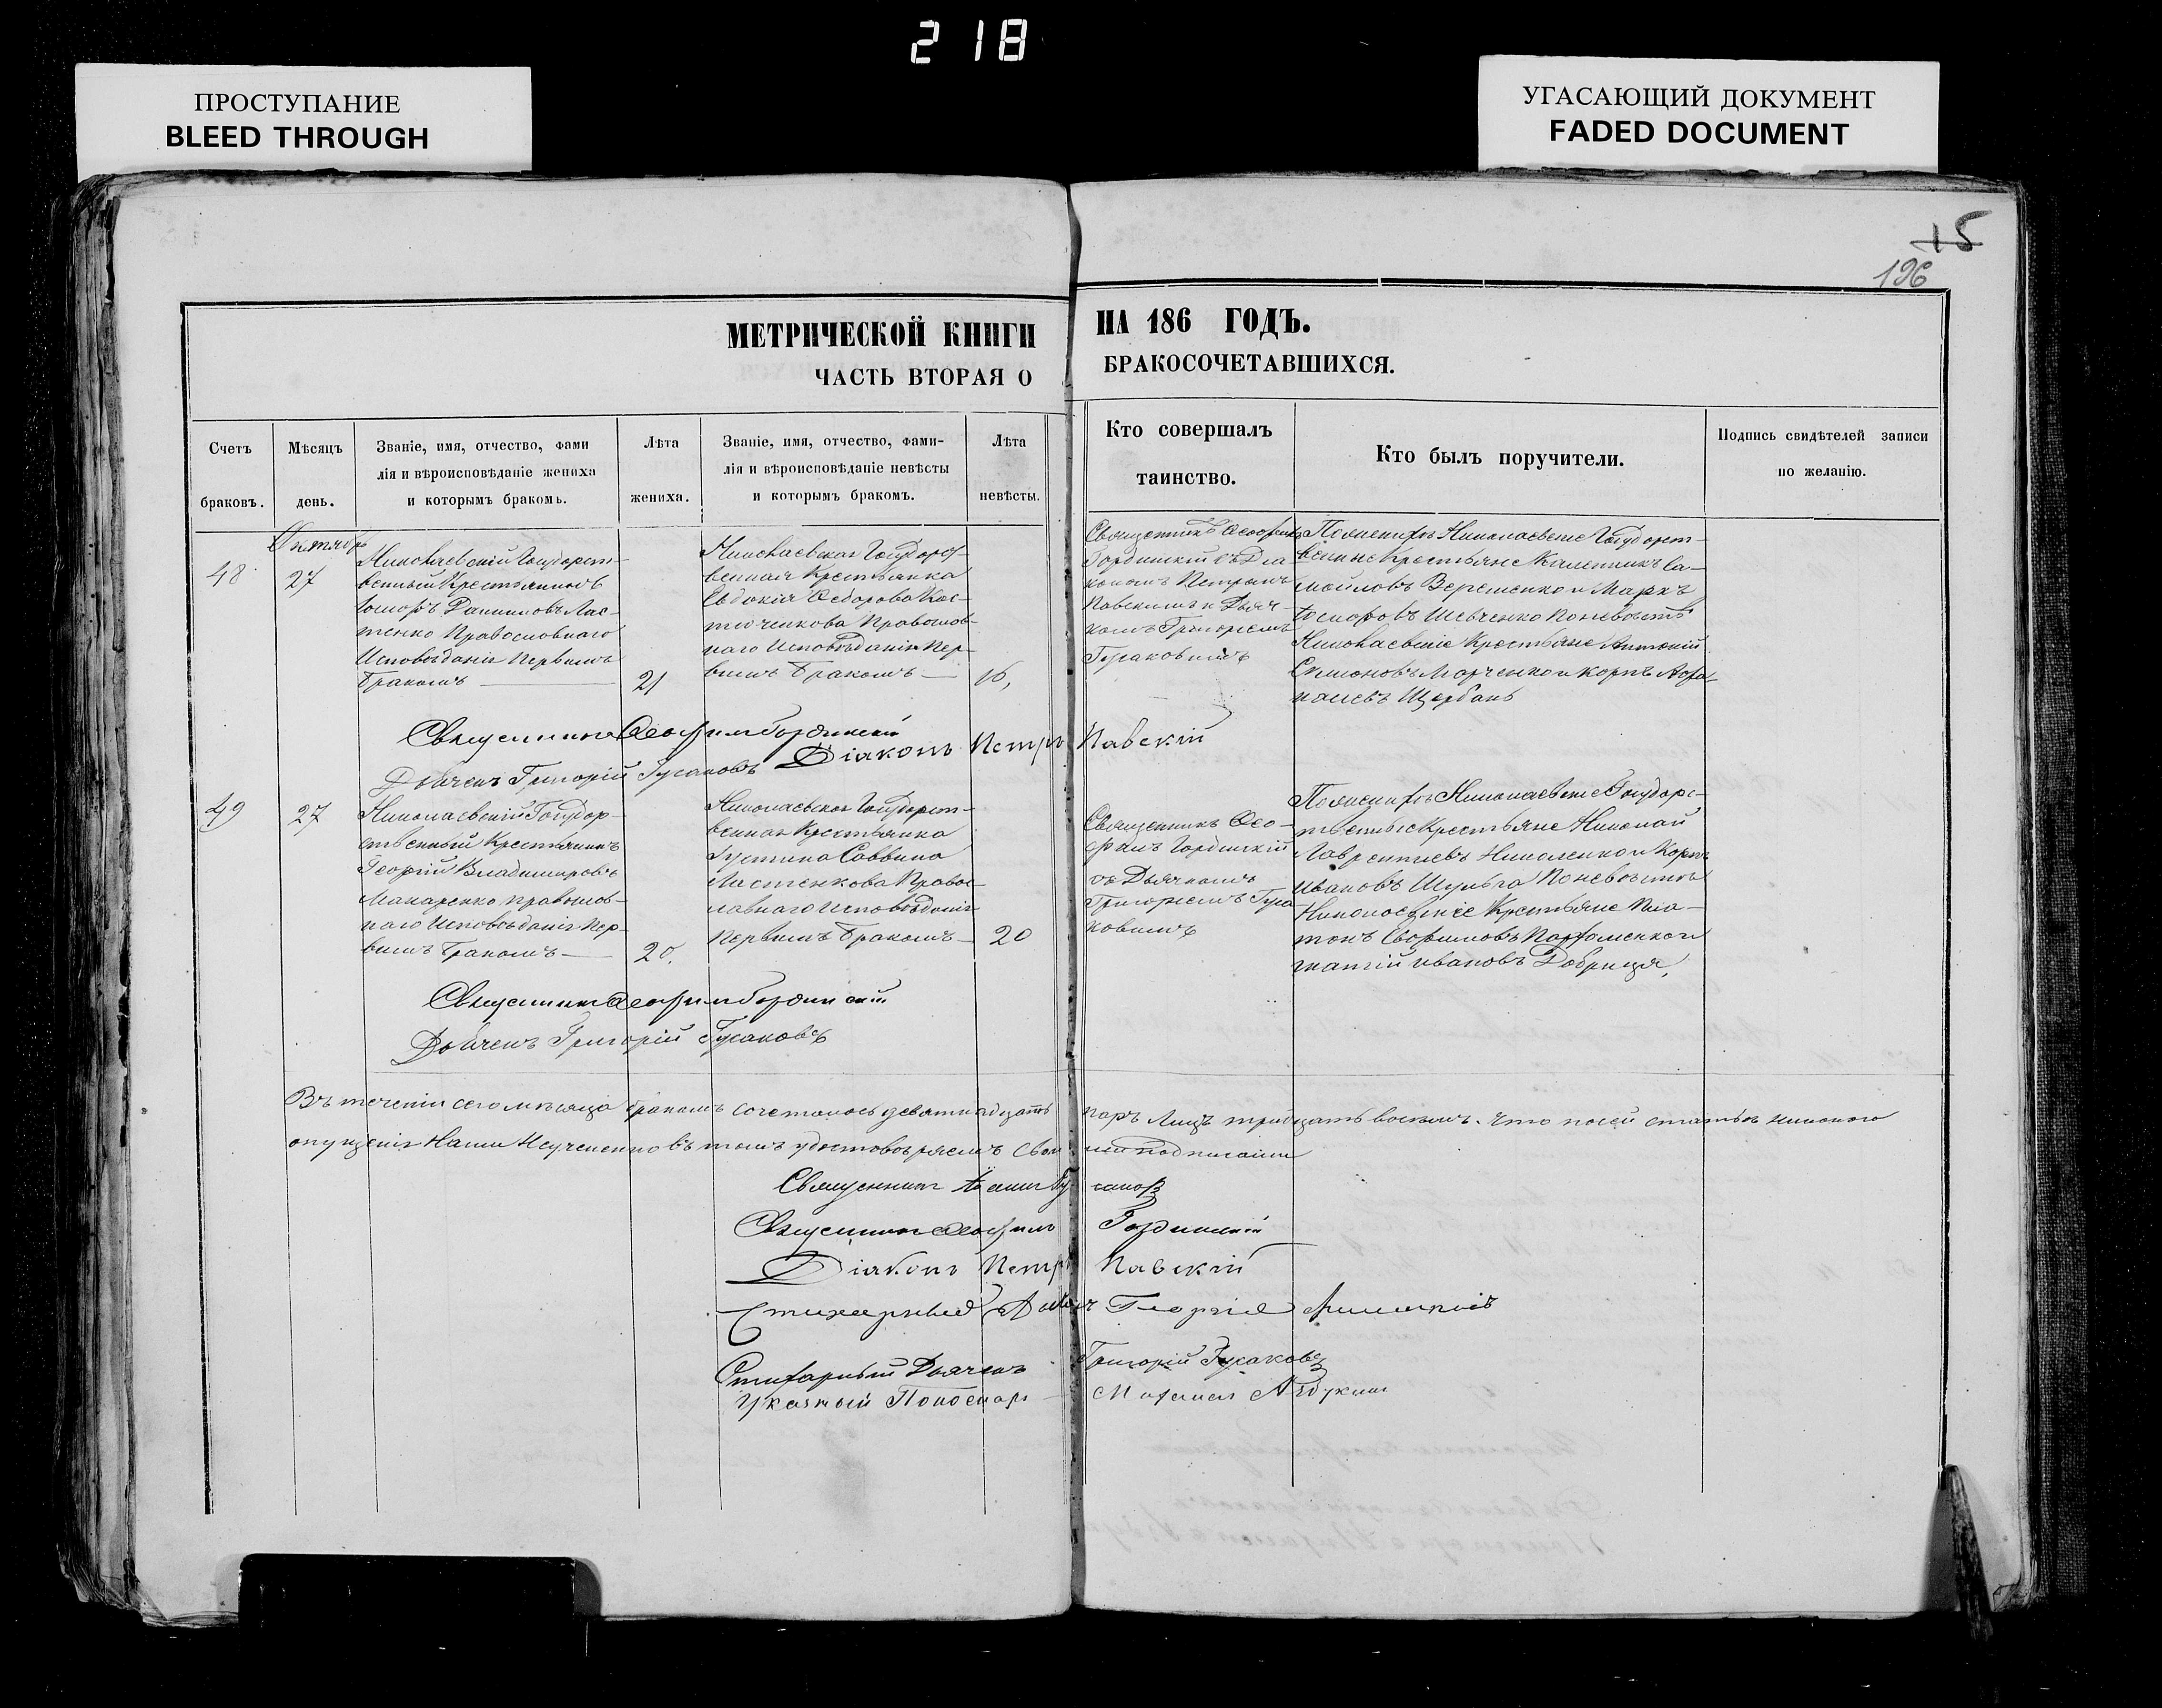 218
ПРОСТУПАНИЕ
BLEED THROUGH
УГАСАЮЩИЙ ДОКУМЕНТ
FADED DOCUMENT
15
196
МЕТРИЧЕСКОЙ КНИГИ НА 186 ГОДЪ.
ЧАСТЬ ВТОРАЯ О БРАКОСОЧЕТАВШИХСЯ.
Счетъ
браковъ.
Мѣсяцъ
день.
Званіе, имя, отчество, фами
лія и вѣроисповѣданіе жениха
и которымъ бракомъ.
Лѣта
жениха.
Званіе, имя, отчество, фами-
лія и вѣроисповѣданіе невѣсты
и которымъ бракомъ.
Лѣта
невѣсты.
Кто совершалъ
таинство.
Кто былъ поручители.
Подпись свидѣтелей записи
по желанію.
Октябрь
48
27
Николаевскій Государст-
венный Крестьянинъ
Даниловъ Лас-
тенко Православнаго
Исповѣданія Первымъ
Бракомъ
21
Николаевская Государс-
венная Крестьянка
Евдокія Федорова Кос-
тюченкова Православ-
наго Исповѣданія Пер-
вымъ Бракомъ
16,
Священникъ
Гординскій съ Діа
кономъ Петромъ
Павскимъ и Дьяч-
комъ Григоріемъ
Гусаковымъ
По Николаевскіе Государст-
венные Крестьяне Калиникъ Са-
мойловъ Веременко и Маркъ
Шевченко По невѣстѣ
Николаевскіе Крестьяне Антоній
Семіоновъ Марченко и Карпъ Афа-
насіевъ Щербань
Священникъ Гординскій
Діаконъ Петръ Павскій
Дьячекъ Григорій Гусаковъ
49
27
Николаевскій Государ-
ственный Крестьянинъ
Георгій Владимировъ
Макаренко православ-
наго Исповѣданія Пер-
вымъ Бракомъ
20.
Николаевская Государст-
венная Крестьянка
Іустина Саввина
Ластенкова Правос-
лавнаго Исповѣданія
Первымъ Бракомъ
20
Священникъ Ѳео-
филъ Гординскій
съ Дьячкомъ
Григоріемъ Гуса
ковымъ
По Николаевскіе Государс-
твенные Крестьяне Николай
Лаврентіевъ Николенко и Карпъ
Ивановъ Шульга По невѣстѣ
Николаевскіе Крестьяне Пла-
тонъ Пархоменко и
Ивановъ Добриця,
Священникъ Гординскій
Дьячекъ Григорій Гусаковъ
Въ теченіи сего мѣсяца бракомъ сочеталось девятнадцать паръ Лицъ тридцать восемь. Что посей статьѣ никакого
опущенія Нами Неучененно въ томъ удостовѣряемъ Своими подписами
Священникъ
Священникъ Гординскій
Діаконъ Петръ Павскій
Стихарный Георгій
Стихарный Дьячекъ Григорій Гусаковъ
Указный Пономарь